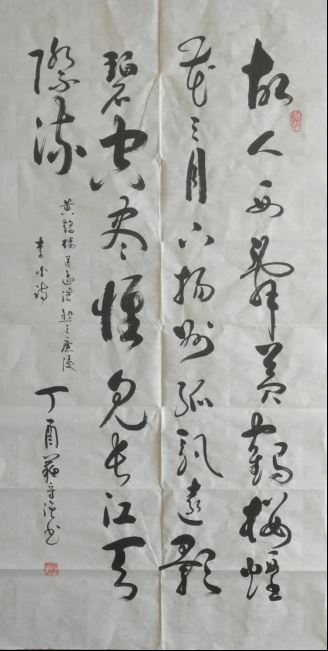 故人西辭黃鶴樓煙
花三月下揚州孤帆遠影
碧空盡惟見長江天
際流
黃鶴樓送孟浩然之廣陵
李白詩
丁酉